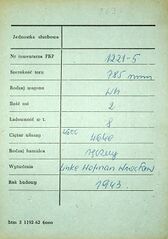 263.
Jednostka służbowa
Nr inwentarza PKP 1221-5
Szerokość toru 785 mm
Rodzaj wagonu Wh
Ilość osi 2
Ładowność w t. 8
Ciężar własny 4640
Rodzaj hamulca ręczny
Wytwórnia Linke Hofman Wrocław
Rok budowy 1943.